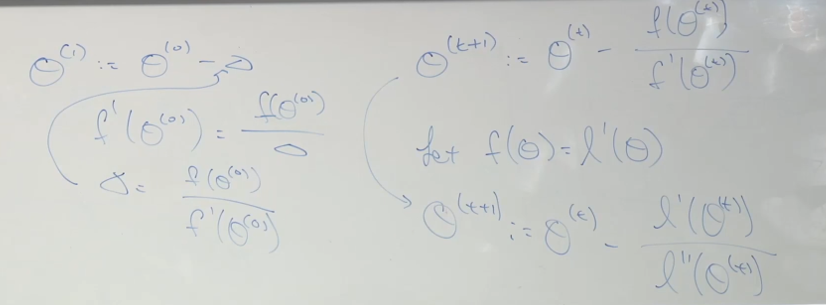 Θ^(1) := Θ^(0) - Δ
f'(Θ^(0)) = f(Θ^(0)) / Δ
Δ = f(Θ^(0)) / f'(Θ^(0))
Θ^(t+1) := Θ^(t) - f(Θ^(t)) / f'(Θ^(t))
Let f(Θ) = l'(Θ)
Θ^(t+1) := Θ^(t) - l'(Θ^(t)) / l''(Θ^(t))